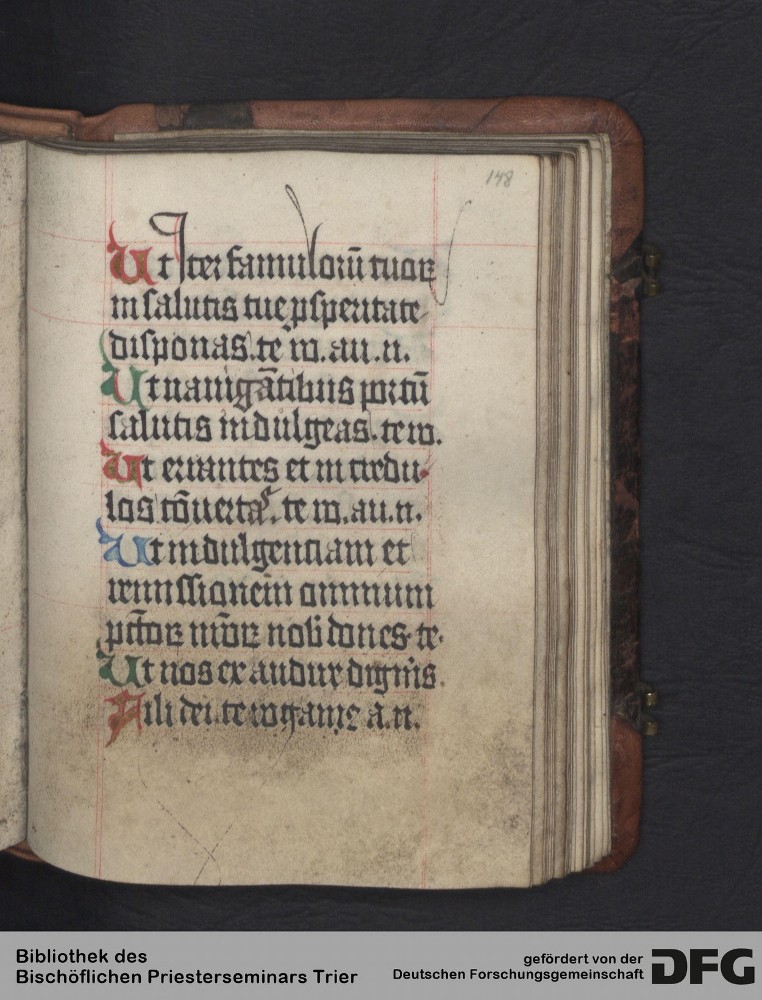 148
Ut Iter famulorū tuoꝝ
in salutis tue ꝓsperitate
disponas. te ro. au. n.
Ut nauigātibus portū
salutis indulgeas. te ro.
Ut errantes et incredu-
los cōuertas. te ro. au. n.
Ut indulgenciam et
remissionem omnium
pctōꝝ nrōꝝ nobis dones. te.
Ut nos exaudire digneris.
Fili dei. te rogamꝰ a. n.
Bibliothek des
Bischöflichen Priesterseminars Trier
gefördert von der
Deutschen Forschungsgemeinschaft
DFG